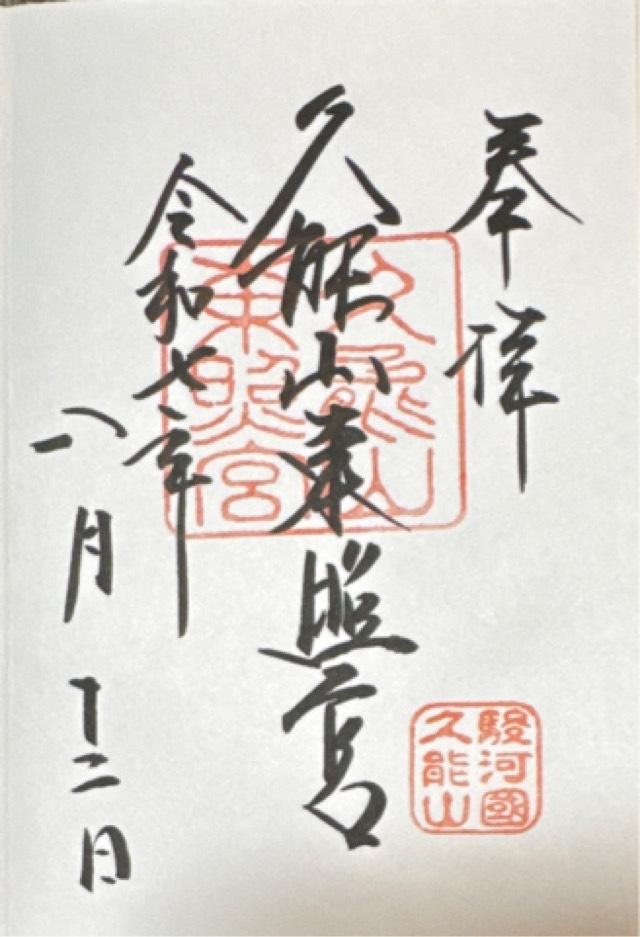 奉拝
久能山東照宮
令和七年
八月十二日
久能山
東照宮
駿河國
久能山